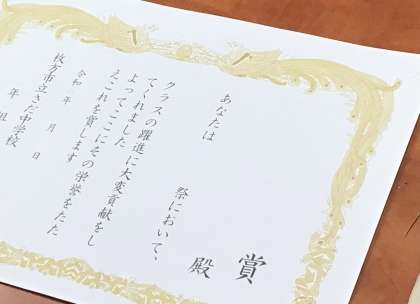 賞
殿
あなたは
祭において、
クラスの躍進に大変貢献をし
てくれました
よってここにその栄誉をたた
えこれを賞します
令和 年 月 日
枚方市立さだ中学校
年 組